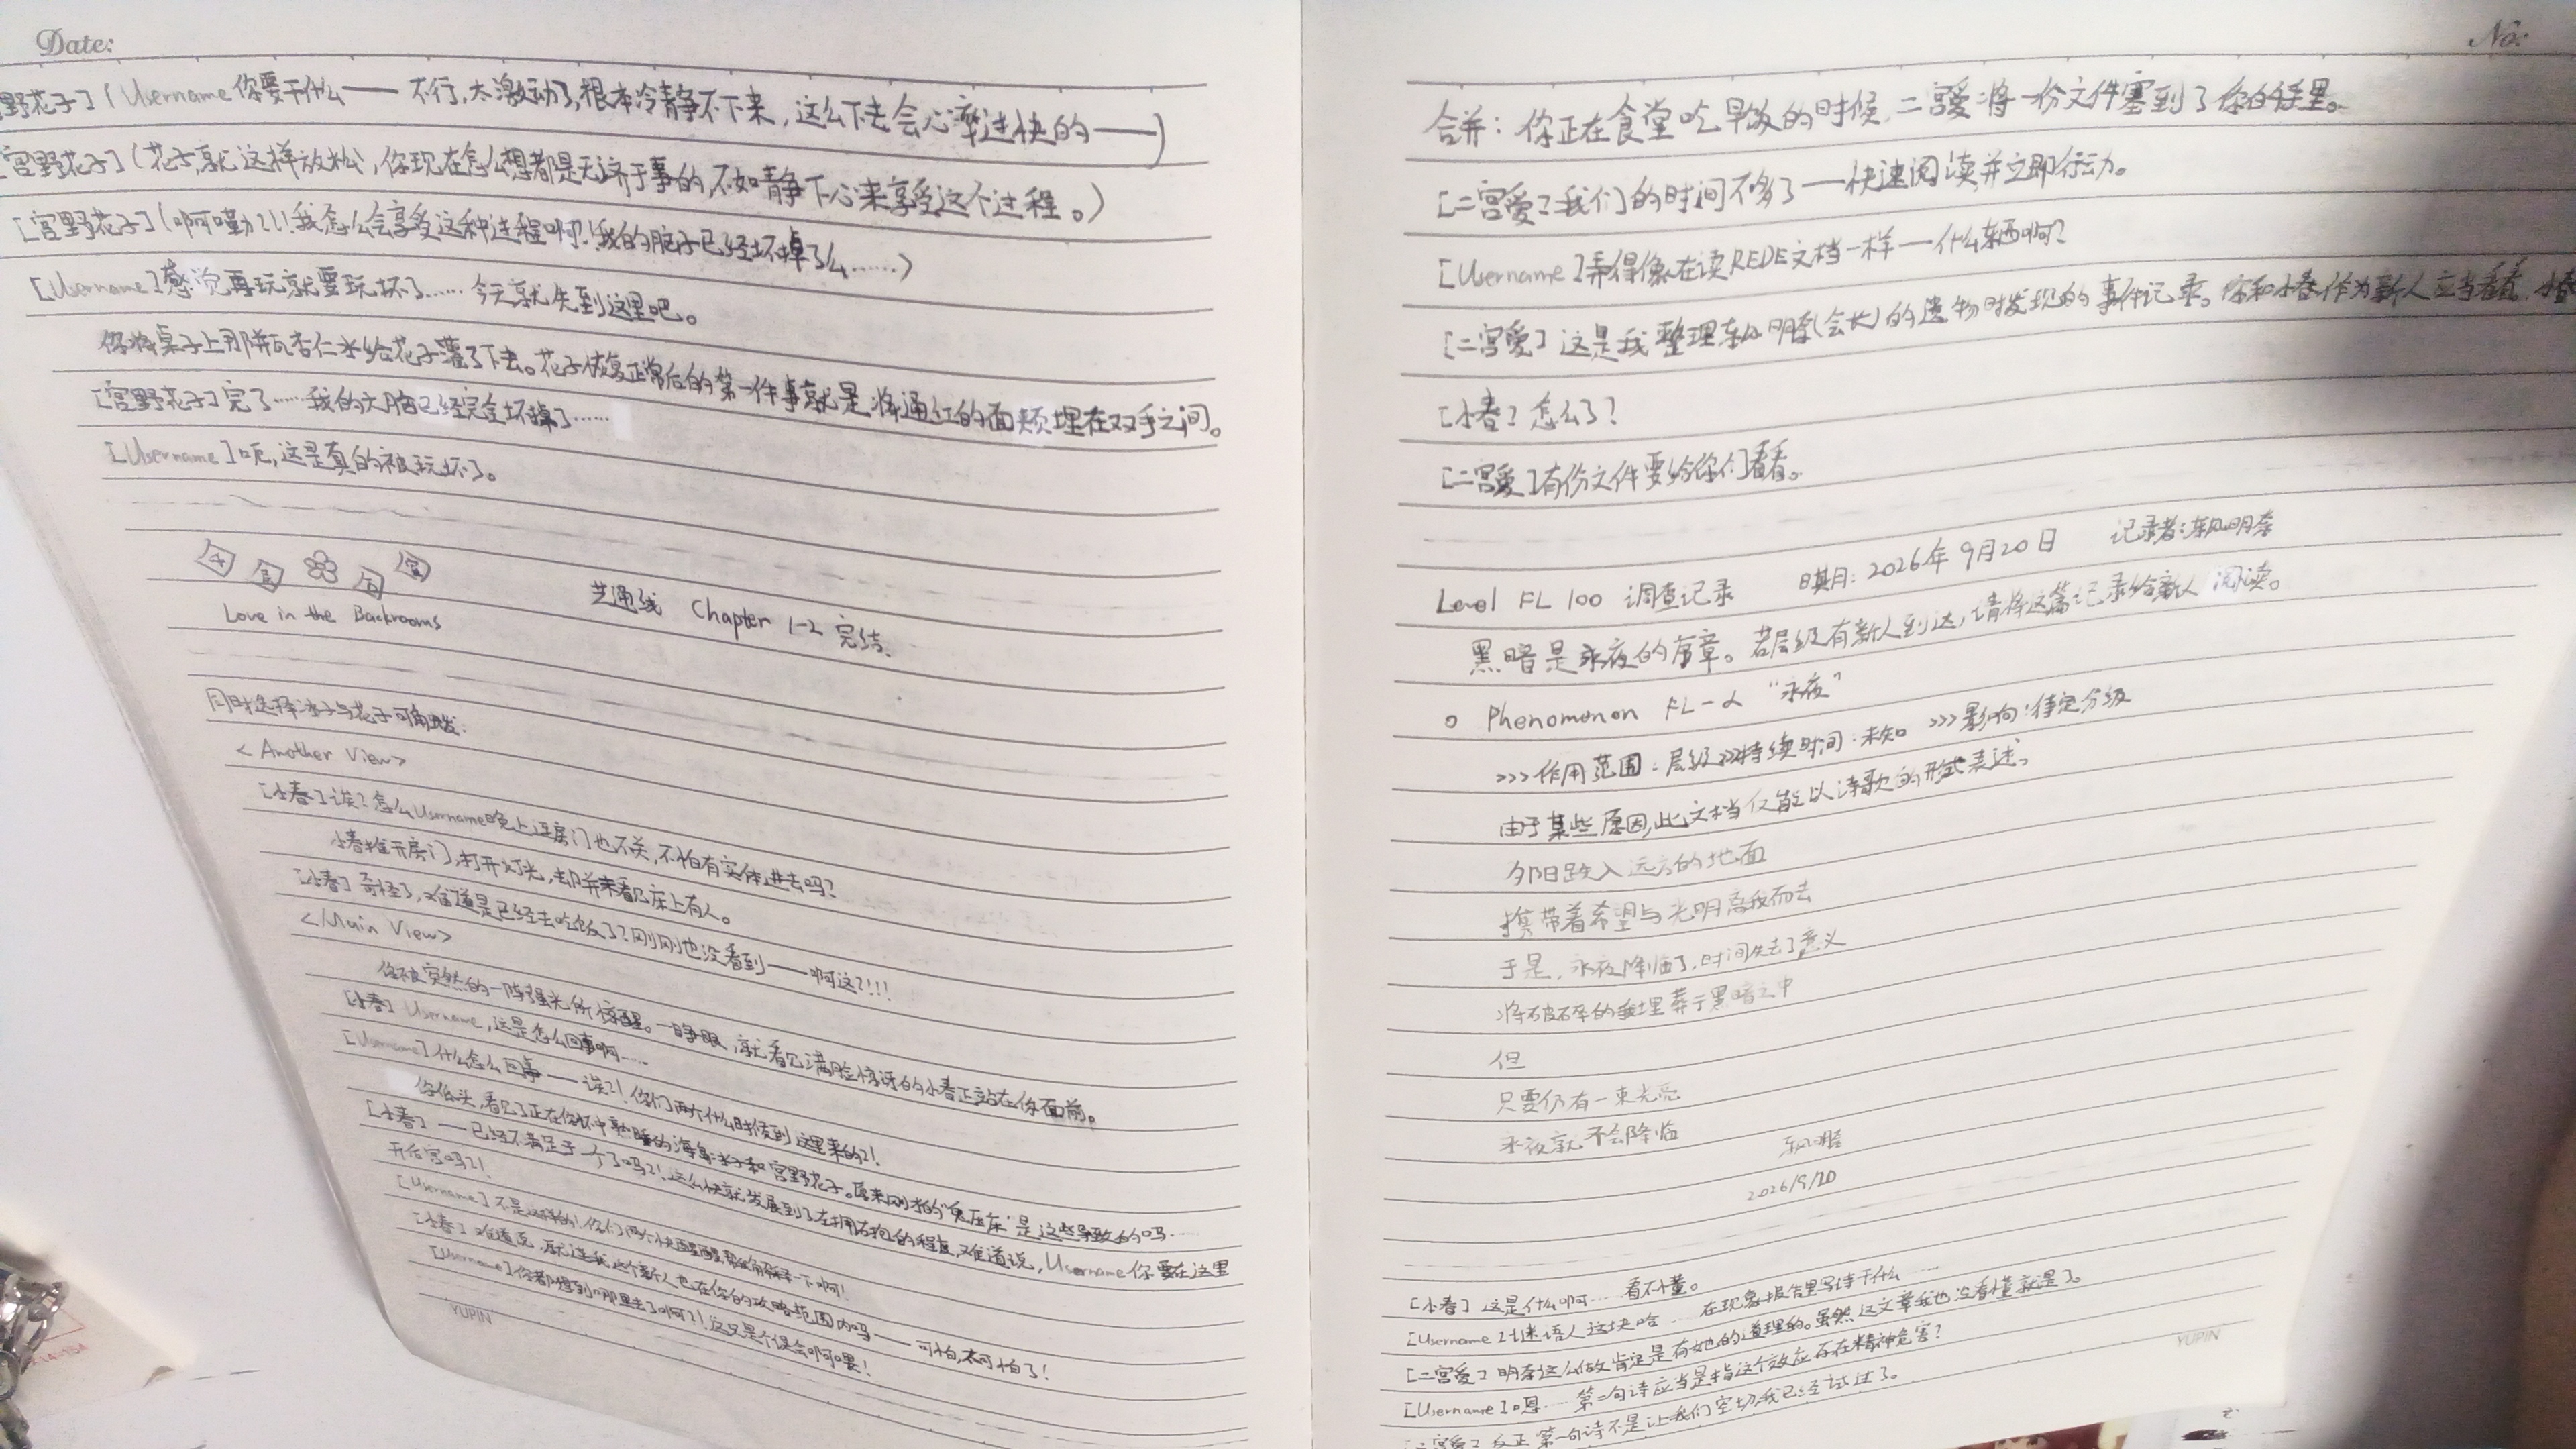 Date:
野花子](Username你要干什么——不行,太激动了,根本冷静不下来,这么下去会心率过快的——)
[宫野花子](花子,就这样放松,你现在怎么想都是无济于事的,不如静下心来享受这个过程。)
[宫野花子](啊嘞?!!我怎么会享受这种过程啊?!我的脑子已经坏掉了么……)
[Username]感觉再玩就要玩坏了……今天就先到这里吧。
你将桌子上那瓶杏仁水给花子灌了下去。花子恢复正常后的第一件事就是将通红的面颊埋在双手之间。
[宫野花子]完了……我的大脑已经完全坏掉了……
[Username]呃,这是真的被玩坏了。
Love in the Backrooms
共通线 Chapter 1-2 完结.
同时选择冰子与花子可触发:
<Another View>
[小春]诶?怎么Username晚上连房门也不关,不怕有实体进去吗?
小春推开房门,打开灯光,却并未看见床上有人。
[小春]奇怪了,难道是已经去吃饭了?刚刚也没看到——啊这?!!!
</Main View>
你被突然的一阵强光所惊醒。一睁眼,就看见满脸惊讶的小春正站在你面前。
[小春]Username,这是怎么回事啊……
[Username]什么怎么回事——诶?!你们两个什么时候到这里来的?!
你低头,看见了正在你怀中熟睡的海冰子和宫野花子。原来刚才的"鬼压床"是这些导致的吗……
[小春]——已经不满足于一个了吗?!这么快就发展到了左拥右抱的程度,难道说,Username你要在这里
开后宫吗?!
[Username]不是这样的!你们两个快醒醒帮我解释一下啊!
[小春]难道说,就连我这个新人也在你的攻略范围内吗——可怕,太可怕了!
[Username]你都想到哪里去了啊?!这只是个误会啊喂!
YUPIN
No:
合并:你正在食堂吃早饭的时候,二宫爱将一份文件塞到了你的手里。
[二宫爱]我们的时间不多了——快速阅读并立即行动。
[Username]弄得像在读REDE文档一样——什么东西啊?
[二宫爱]这是我整理东风明奈(会长)的遗物时发现的事件记录。你和小春作为新人应当看看。小春
[小春]怎么了?
[二宫爱]有份文件要给你们看看。
Level FL 100 调查记录 日期:2026年9月20日 记录者:东风明奈
黑暗是永夜的序章。若层级有新人到达,请将这篇记录给新人阅读。
○ Phenomenon FL-α "永夜"
>>>作用范围:层级>>>持续时间:未知 >>>影响:待定分级
由于某些原因,此文档仅能以诗歌的形式表述。
夕阳跌入远方的地面
携带着希望与光明离我而去
于是,永夜降临了,时间失去了意义
将破碎的我埋葬于黑暗之中
但
只要仍有一束光亮
永夜就不会降临
东风明奈
2026/9/20
[小春]这是什么啊……看不懂。
[Username]谜语人这块哈……在现象报告里写诗干什么……
[二宫爱]明奈这么做肯定是有她的道理的。虽然这文章我也没看懂就是了。
[Username]嗯……第二句诗应当是指这个效应存在精神危害?
[二宫爱]反正第一句诗不是让我们空切,我已经试过了。
YUPIN